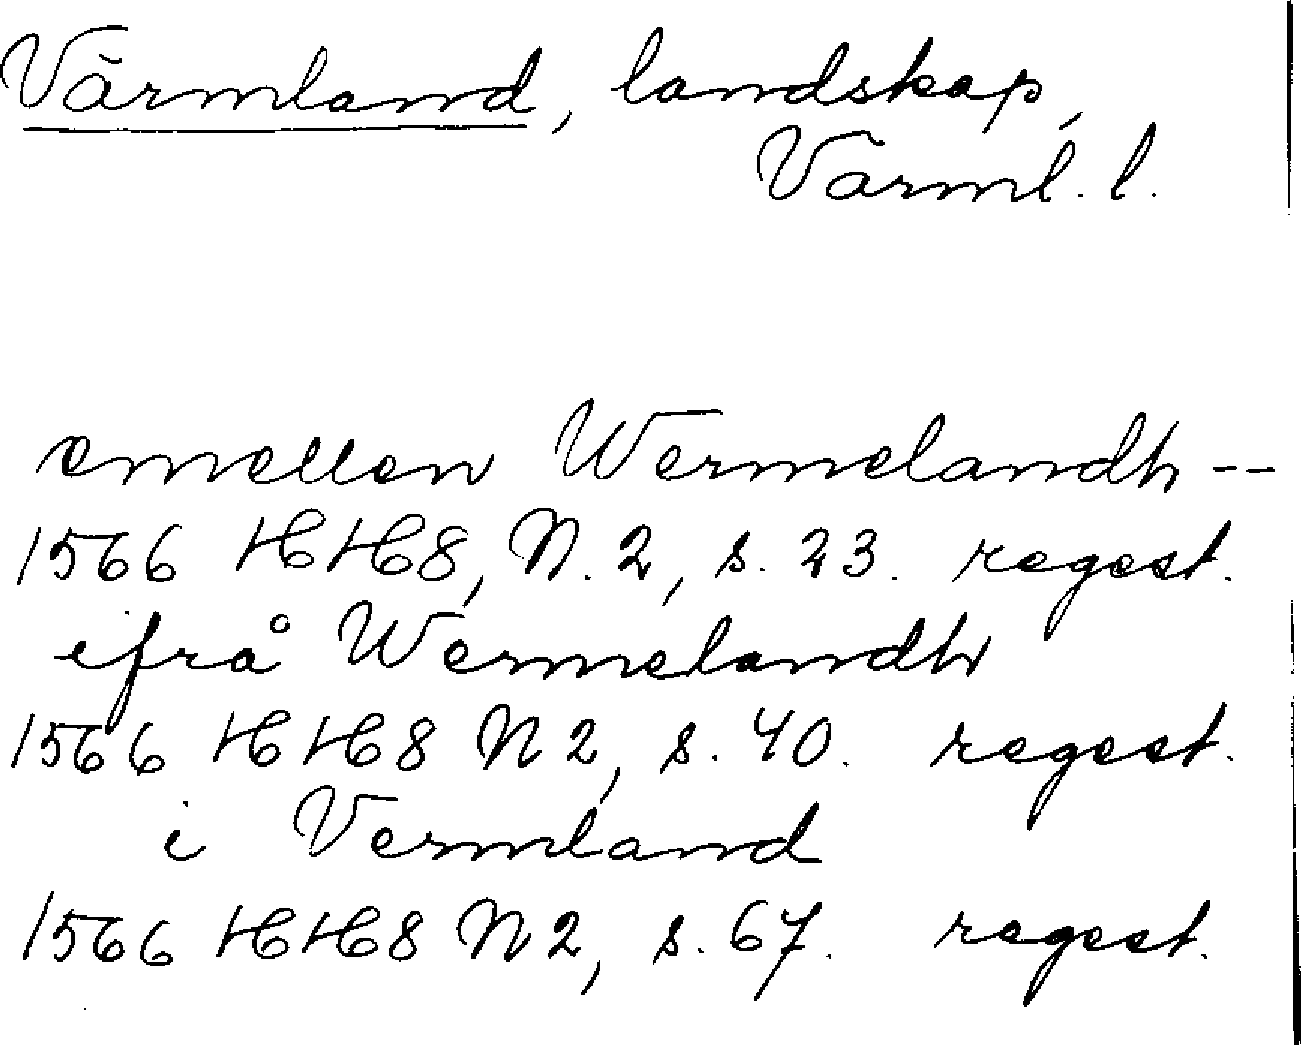 Värmland, landskap,
Värml. l.
emellen Wermelandh --
1566 HH8, N. 2, s. 23. regest.
ifrå Wermelandh
1566 HH8 N 2, s. 40. regest.
i Vermland
1566 HH8 N 2, s. 67. regest.